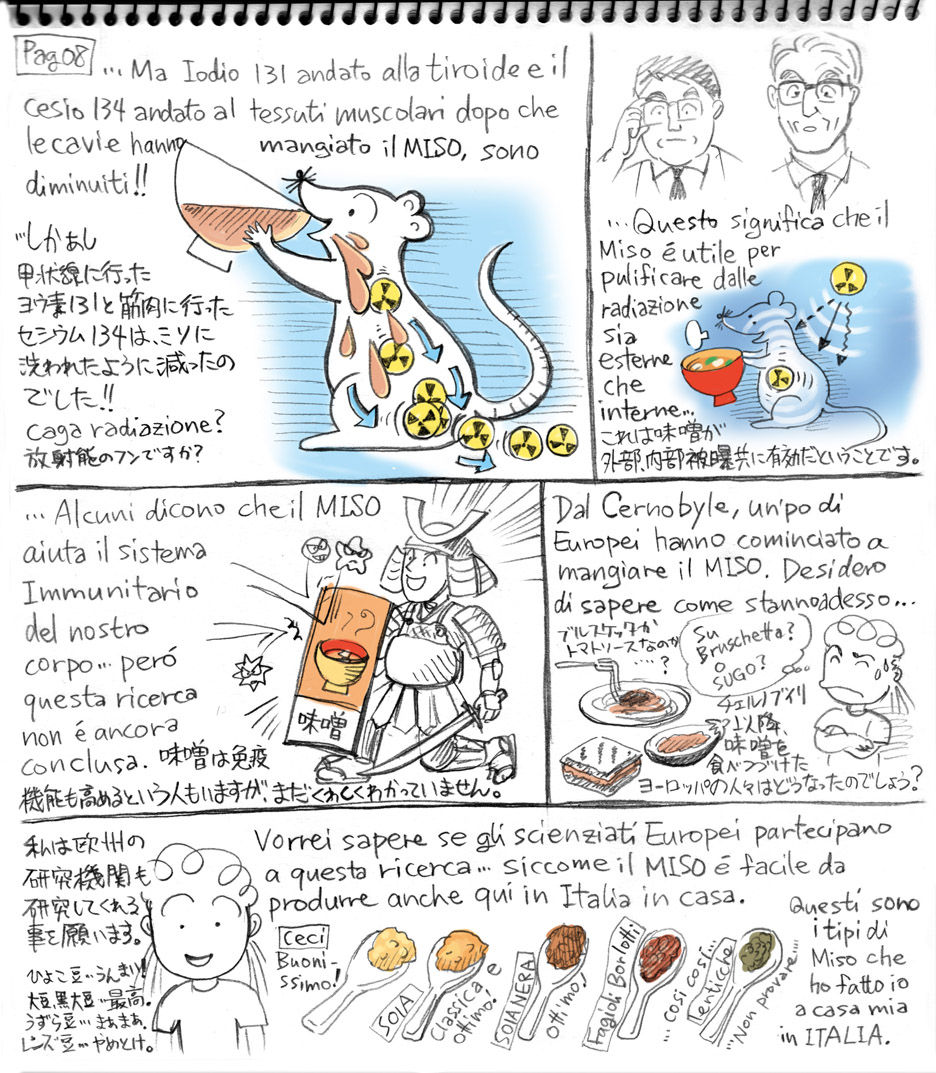 Pag08
... Ma Iodio 131 andato alla tiroide e il
cesio 134 andato al tessuti muscolari dopo che
le cavie hanno mangiato il MISO, sono
diminuiti!!
...しかぁし
甲状線に行った
ヨウ素131と筋肉に行った
セシウム134は、ミソに
洗われたように減ったの
でした!!
caga radiazione?
放射能のフンですか?
...Questo significa che il
Miso é utile per
pulificare dalle
radiazione
sia
esterne
che
interne...
これは味噌が
外部、内部被曝共に有効だということです。
... Alcuni dicono che il MISO
aiuta il sistema
Immunitario
del nostro
corpo... peró
questa ricerca
non é ancora
conclusa.
味噌は免疫
機能も高めるという人もいますが、まだくわしくわかっていません。
味噌
Dal Cernobyle, un'po di
Europei hanno cominciato a
mangiare il MISO. Desidero
di sapere come stanno adesso...
ブルスケッタか
トマトソースなのか
....?
Su
Bruschetta?
o
SUGO?
チェルノブイリ
以降、
味噌を
食べつづけた
ヨーロッパの人々はどうなったのでしょう?
私は欧州の
研究機関も
研究してくれる
事を願います。
ひよこ豆...うんまい!
大豆,黒大豆...最高。
うずら豆...まぁまぁ。
レンズ豆...やめとけ。
Vorrei sapere se gli scienziati Europei partecipano
a questa ricerca... siccome il MISO é facile da
produrre anche qui in Italia in casa.
Ceci
Buoni-
ssimo!
SOIA
Classica e
ottimo!
SOIA NERA
Ottimo!
Fagioli Borlotti
...cosi cosi...
Lenticche
...Non provare....
Questi sono
i tipi di
Miso che
ho fatto io
a casa mia
in ITALIA.